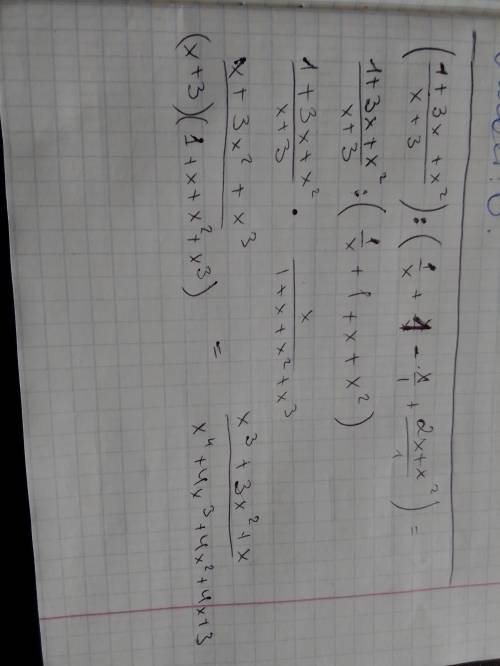 (1 + 3x + x² / x + 3) : (1/x + 1 - x/1 + 2x + x²/1) =
1 + 3x + x² / x + 3 : (1/x + 1 + x + x²)
1 + 3x + x² / x + 3 · x / 1 + x + x² + x³
x + 3x² + x³ / (x + 3)(1 + x + x² + x³) = x³ + 3x² + x / x⁴ + 4x³ + 4x² + 4x + 3